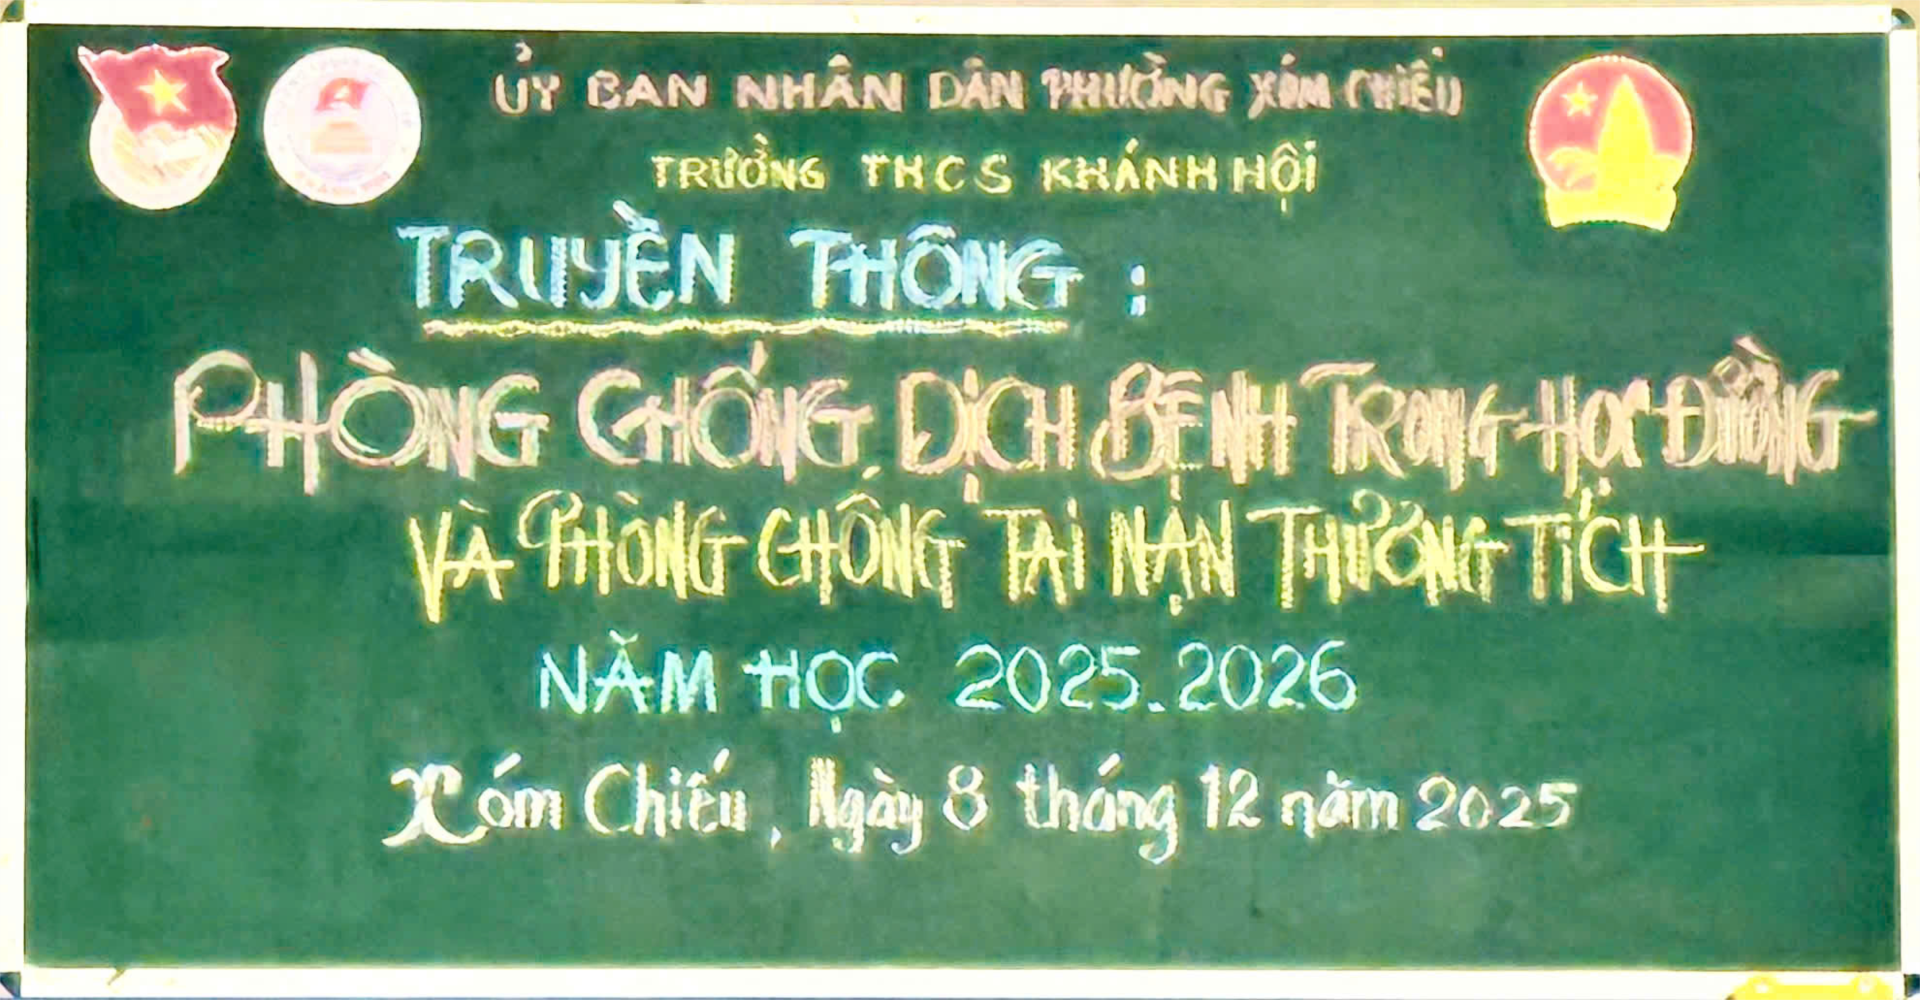 ỦY BAN NHÂN DÂN PHƯỜNG XÓM CHIẾU
TRƯỜNG THCS KHÁNH HỘI
TRUYỀN THÔNG :
PHÒNG CHỐNG DỊCH BỆNH TRONG HỌC ĐƯỜNG
VÀ PHÒNG CHỐNG TAI NẠN THƯƠNG TÍCH
NĂM HỌC 2025.2026
Xóm Chiếu, Ngày 8 tháng 12 năm 2025